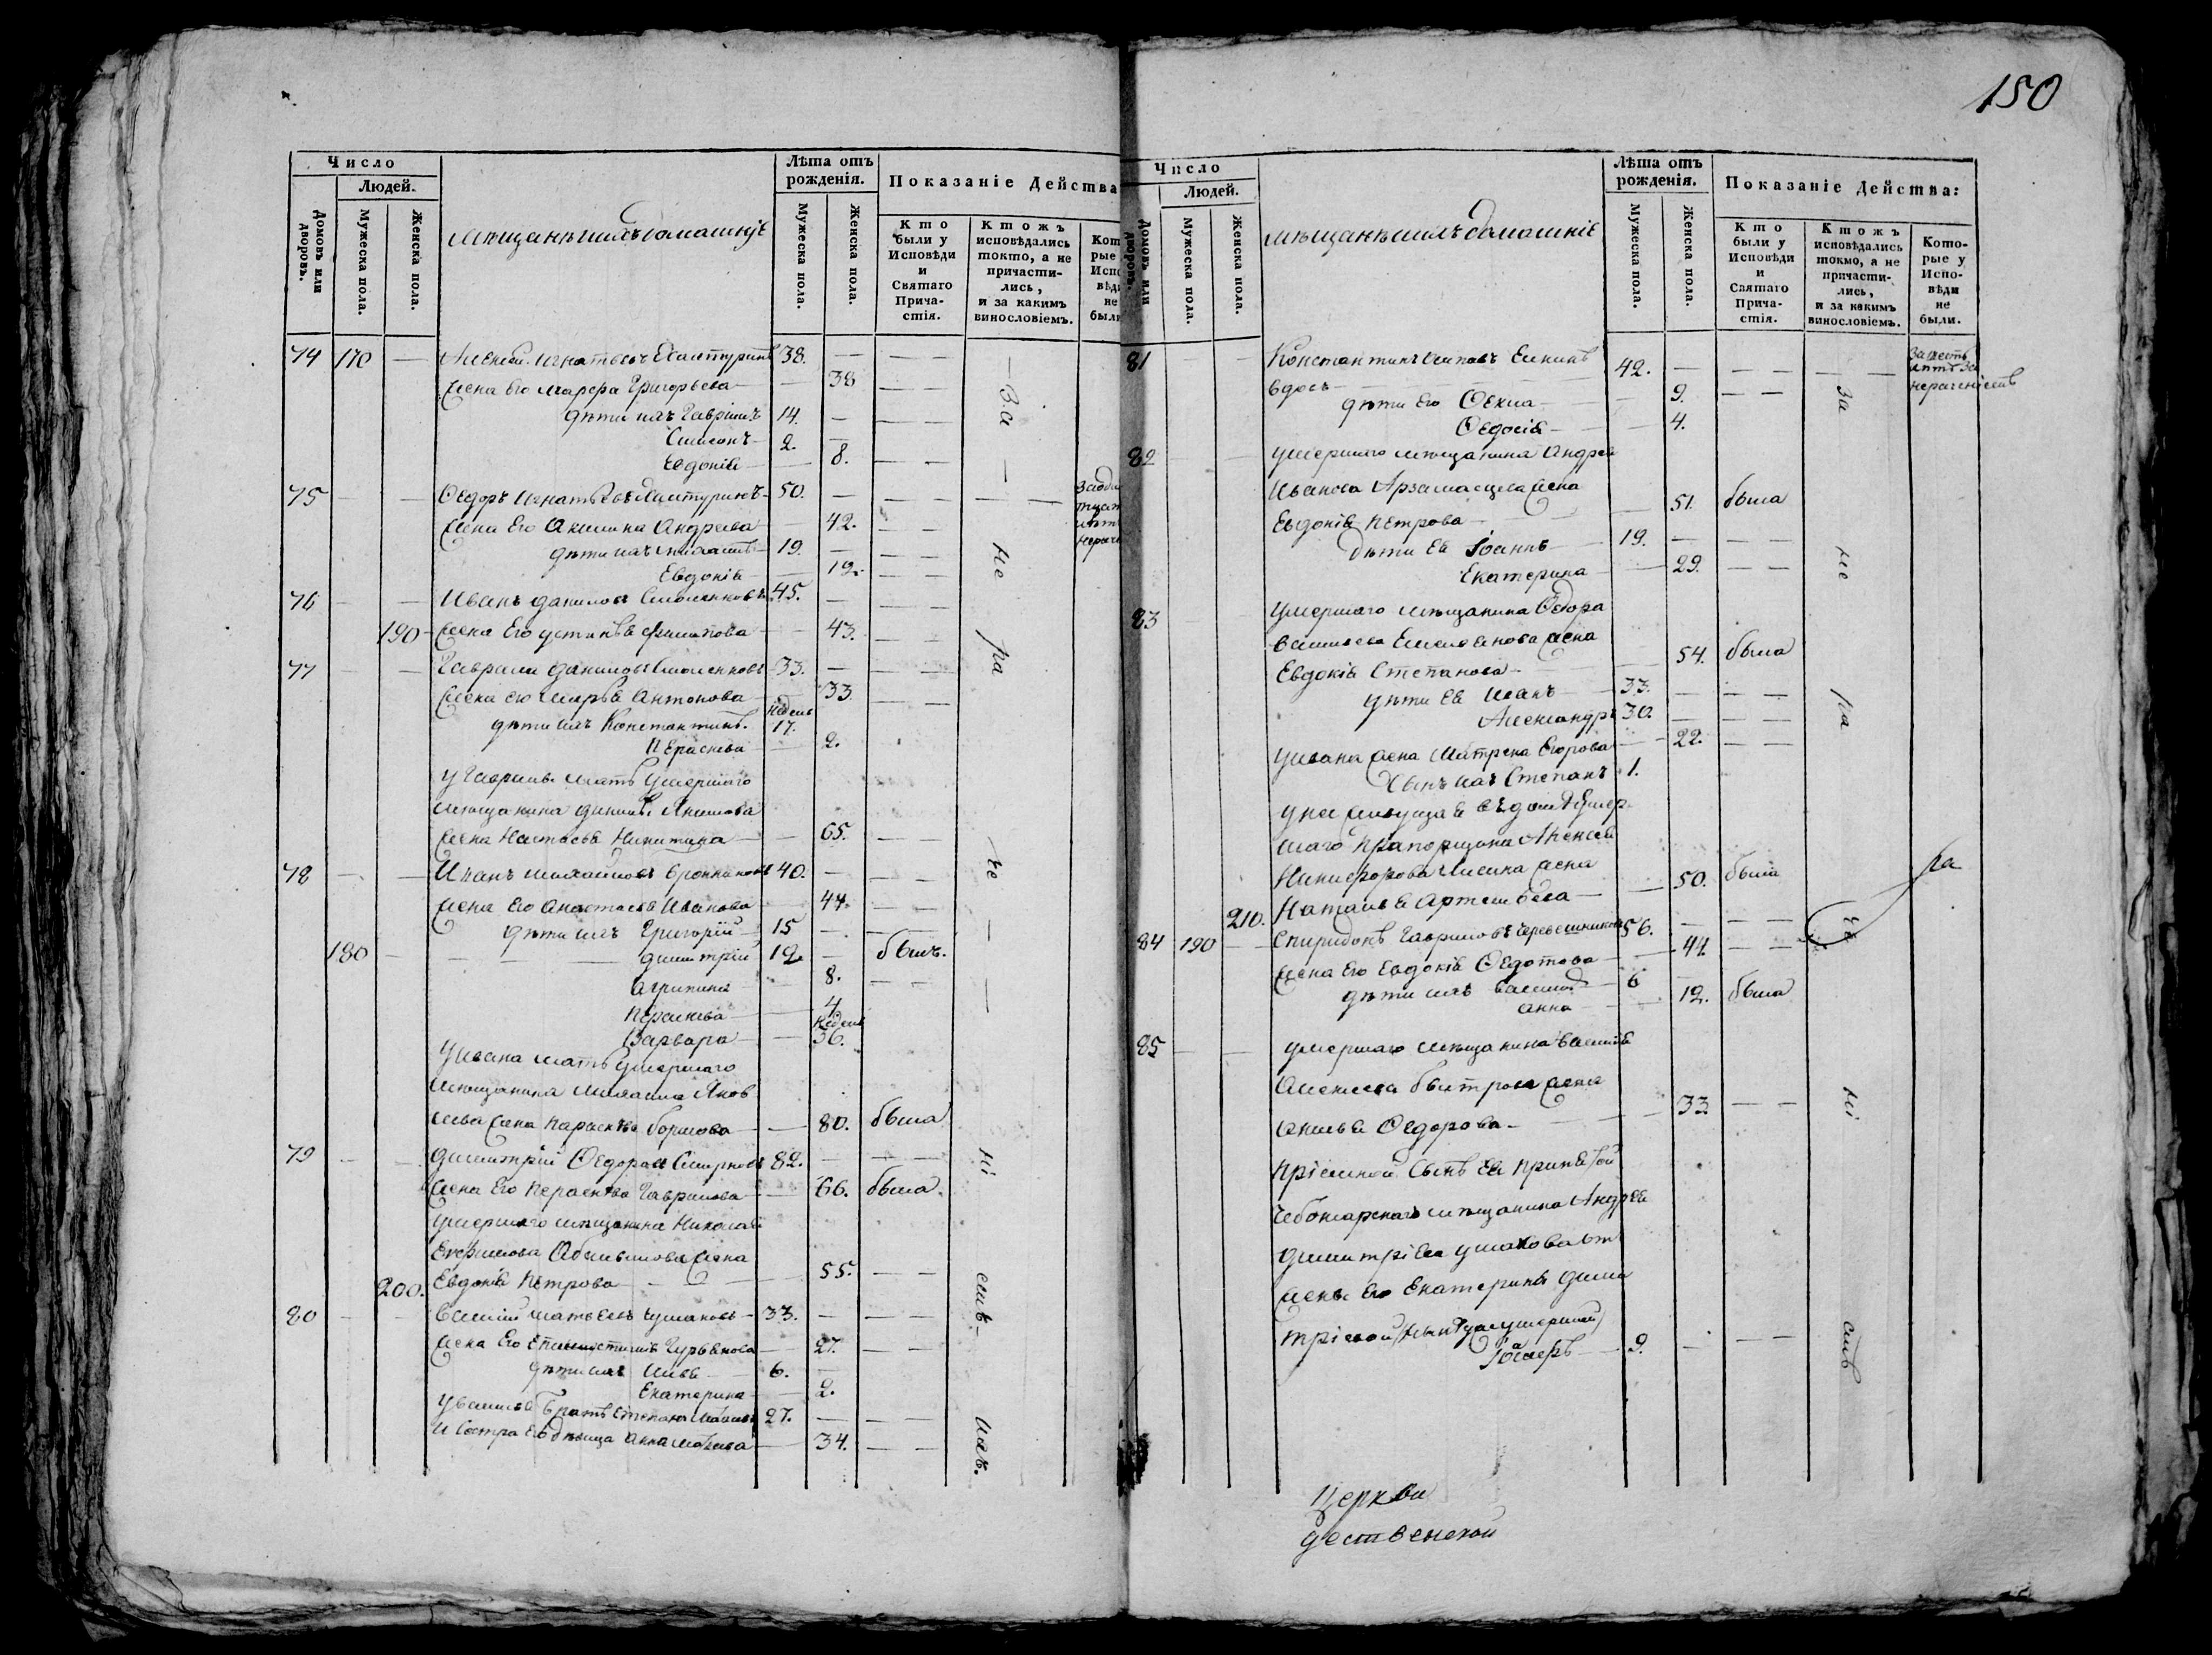 150
Число
Людей.
Домовъ или дворовъ.
Мужеска пола.
Женска пола.
Мѣщанѣ ихъ домашніе
Лѣта отъ рожденія.
Мужеска пола.
Женска пола.
Показаніе Действа
Кто были у Исповѣди и Святаго Прича-стія.
Ктожъ исповѣдались токмо, а не причасти-лись, и за какимъ винословіемъ.
Кот рые Испо вѣди не были
74 170 — Алексей Игнатьевъ 38. — — —
жена Его Марфа Григорьева — 38 — —
дѣти ихъ Гаврилъ 14. — — —
Симеонъ 2. —
Евдокія — 8. — —
75 — — Ѳедоръ Игнатьевъ 50. — — —
жена Его Акилина Андреева — 42. — —
дѣти ихъ Михаилъ 19. — — —
Евдокія — 12. — —
76 — — Иванъ Даниловъ Смоленковъ 45. — — —
190 жена Его Устинья Филипова — 43. — —
77 — — Гаврила Даниловъ Смоленковъ 33. — — —
жена его Марья Антонова — 33. — —
недель
дѣти ихъ Константинъ. 17.
Параскева — 2.
У Гаврилы мать умершаго
мещанина Данилы Акимова
жена Настасья Никитина — 65. — —
78 — — Иванъ Михайловъ 40. — — —
жена Его Анастасья Иванова — 44. — —
дѣти ихъ Григорій 15 — — —
180 — Димитрій 12 — былъ.
Агрипина — 8. — —
Параскева — 4
недель
Варвара — 36.
У Ивана мать умершаго
мещанина Михаила Яков
лева жена Параскева Борисова — 80. была
79 — — Димитрій Ѳедоровъ Смирновъ 82. — — —
жена Его Параскева Гаврилова — 66. была.
умершаго мещанина Николая
Ефимова жена
200. Евдокія Петрова — 55. — —
80 — — Василій Матвеевъ Чушаковъ 33. — — —
жена Его Гурьянова — 27. — —
дѣти ихъ 6. —
Екатерина — 2.
У Василья братъ Степанъ 27. — — —
и сестра Его девица Анна Матвеева — 34. — —
За
не
ра
че
ні
емъ
ихъ.
Число
Людей.
Домовъ или дворовъ.
Мужеска пола.
Женска пола.
Мѣщанѣ ихъ домашніе
Лѣта отъ рожденія.
Мужеска пола.
Женска пола.
Показаніе Действа:
Кто были у Исповѣди и Святаго Прича-стія.
Ктожъ исповѣдались токмо, а не причасти-лись, и за какимъ винословіемъ.
Кото-рые у Испо-вѣди не были.
81 — Константинъ Осиповъ 42. — — —
За шесть летъ за нерачениемъ
вдовъ
дѣти Его Ѳекла — 9. — —
Ѳедосія — 4.
82 — умершаго мещанина Андрея
Иванова Арзамасцева жена
Евдокія Петрова — 51. была
дѣти Ея Іоаннъ 19. — — —
Екатерина — 29. — —
83 умершаго мещанина Ѳедора
Васильева Емельянова жена
Евдокія Степанова — 54. была
дѣти Ея Иванъ 33. — — —
Александръ 30. — — —
У Ивана жена Матрена Егорова — 22. — —
Сынъ ихъ Степанъ 1.
умер-
шаго прапорщика Алексея
Никифорова Лисина жена
210. Наталья Артемьева — 50. была
84 190 — Спиридонъ Гавриловъ 56. — — —
жена Его Евдокія Ѳедотова — 44. — —
дѣти ихъ Василій 6 —
Анна — 12. была
85 — — умершаго мещанина Василья
Алексеева Быстрова жена
Ѳедорова — 33. — —
Пріемной Сынъ Ея принятой
Чебоксарскаго мещанина Андрея
Димитріева Ушакова от
жены Его Екатерины Дими
тріевой
9. — — —
За
не
ра
че
ра
ні
емъ
Церкви
дественской